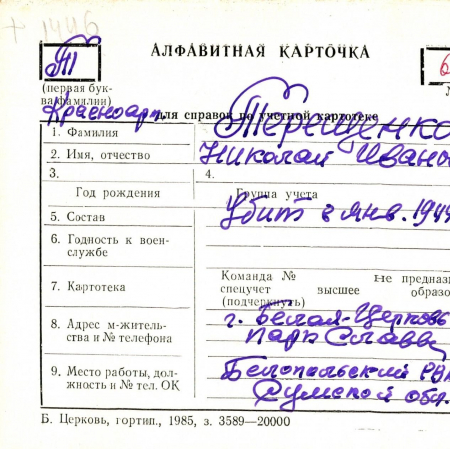 + 1446
АЛФАВИТНАЯ КАРТОЧКА
Т
6
(первая бук-
ва фамилии)
Красноарм.
для справок по учетной картотеке
1. Фамилия Терещенко
2. Имя, отчество Николай Ивано
3. 4.
Год рождения Группа учета
5. Состав Убит в янв. 1944
6. Годность к воен-
службе
Команда № не предназ
7. Картотека спецучет высшее образо
(подчеркнуть)
8. Адрес м-житель-
ства и № телефона
г. Белая-Церковь
парк Славы
9. Место работы, дол-
жность и № тел. ОК
Белопольский РВК
Сумской обл.
Б. Церковь, гортип., 1985, з. 3589—20000